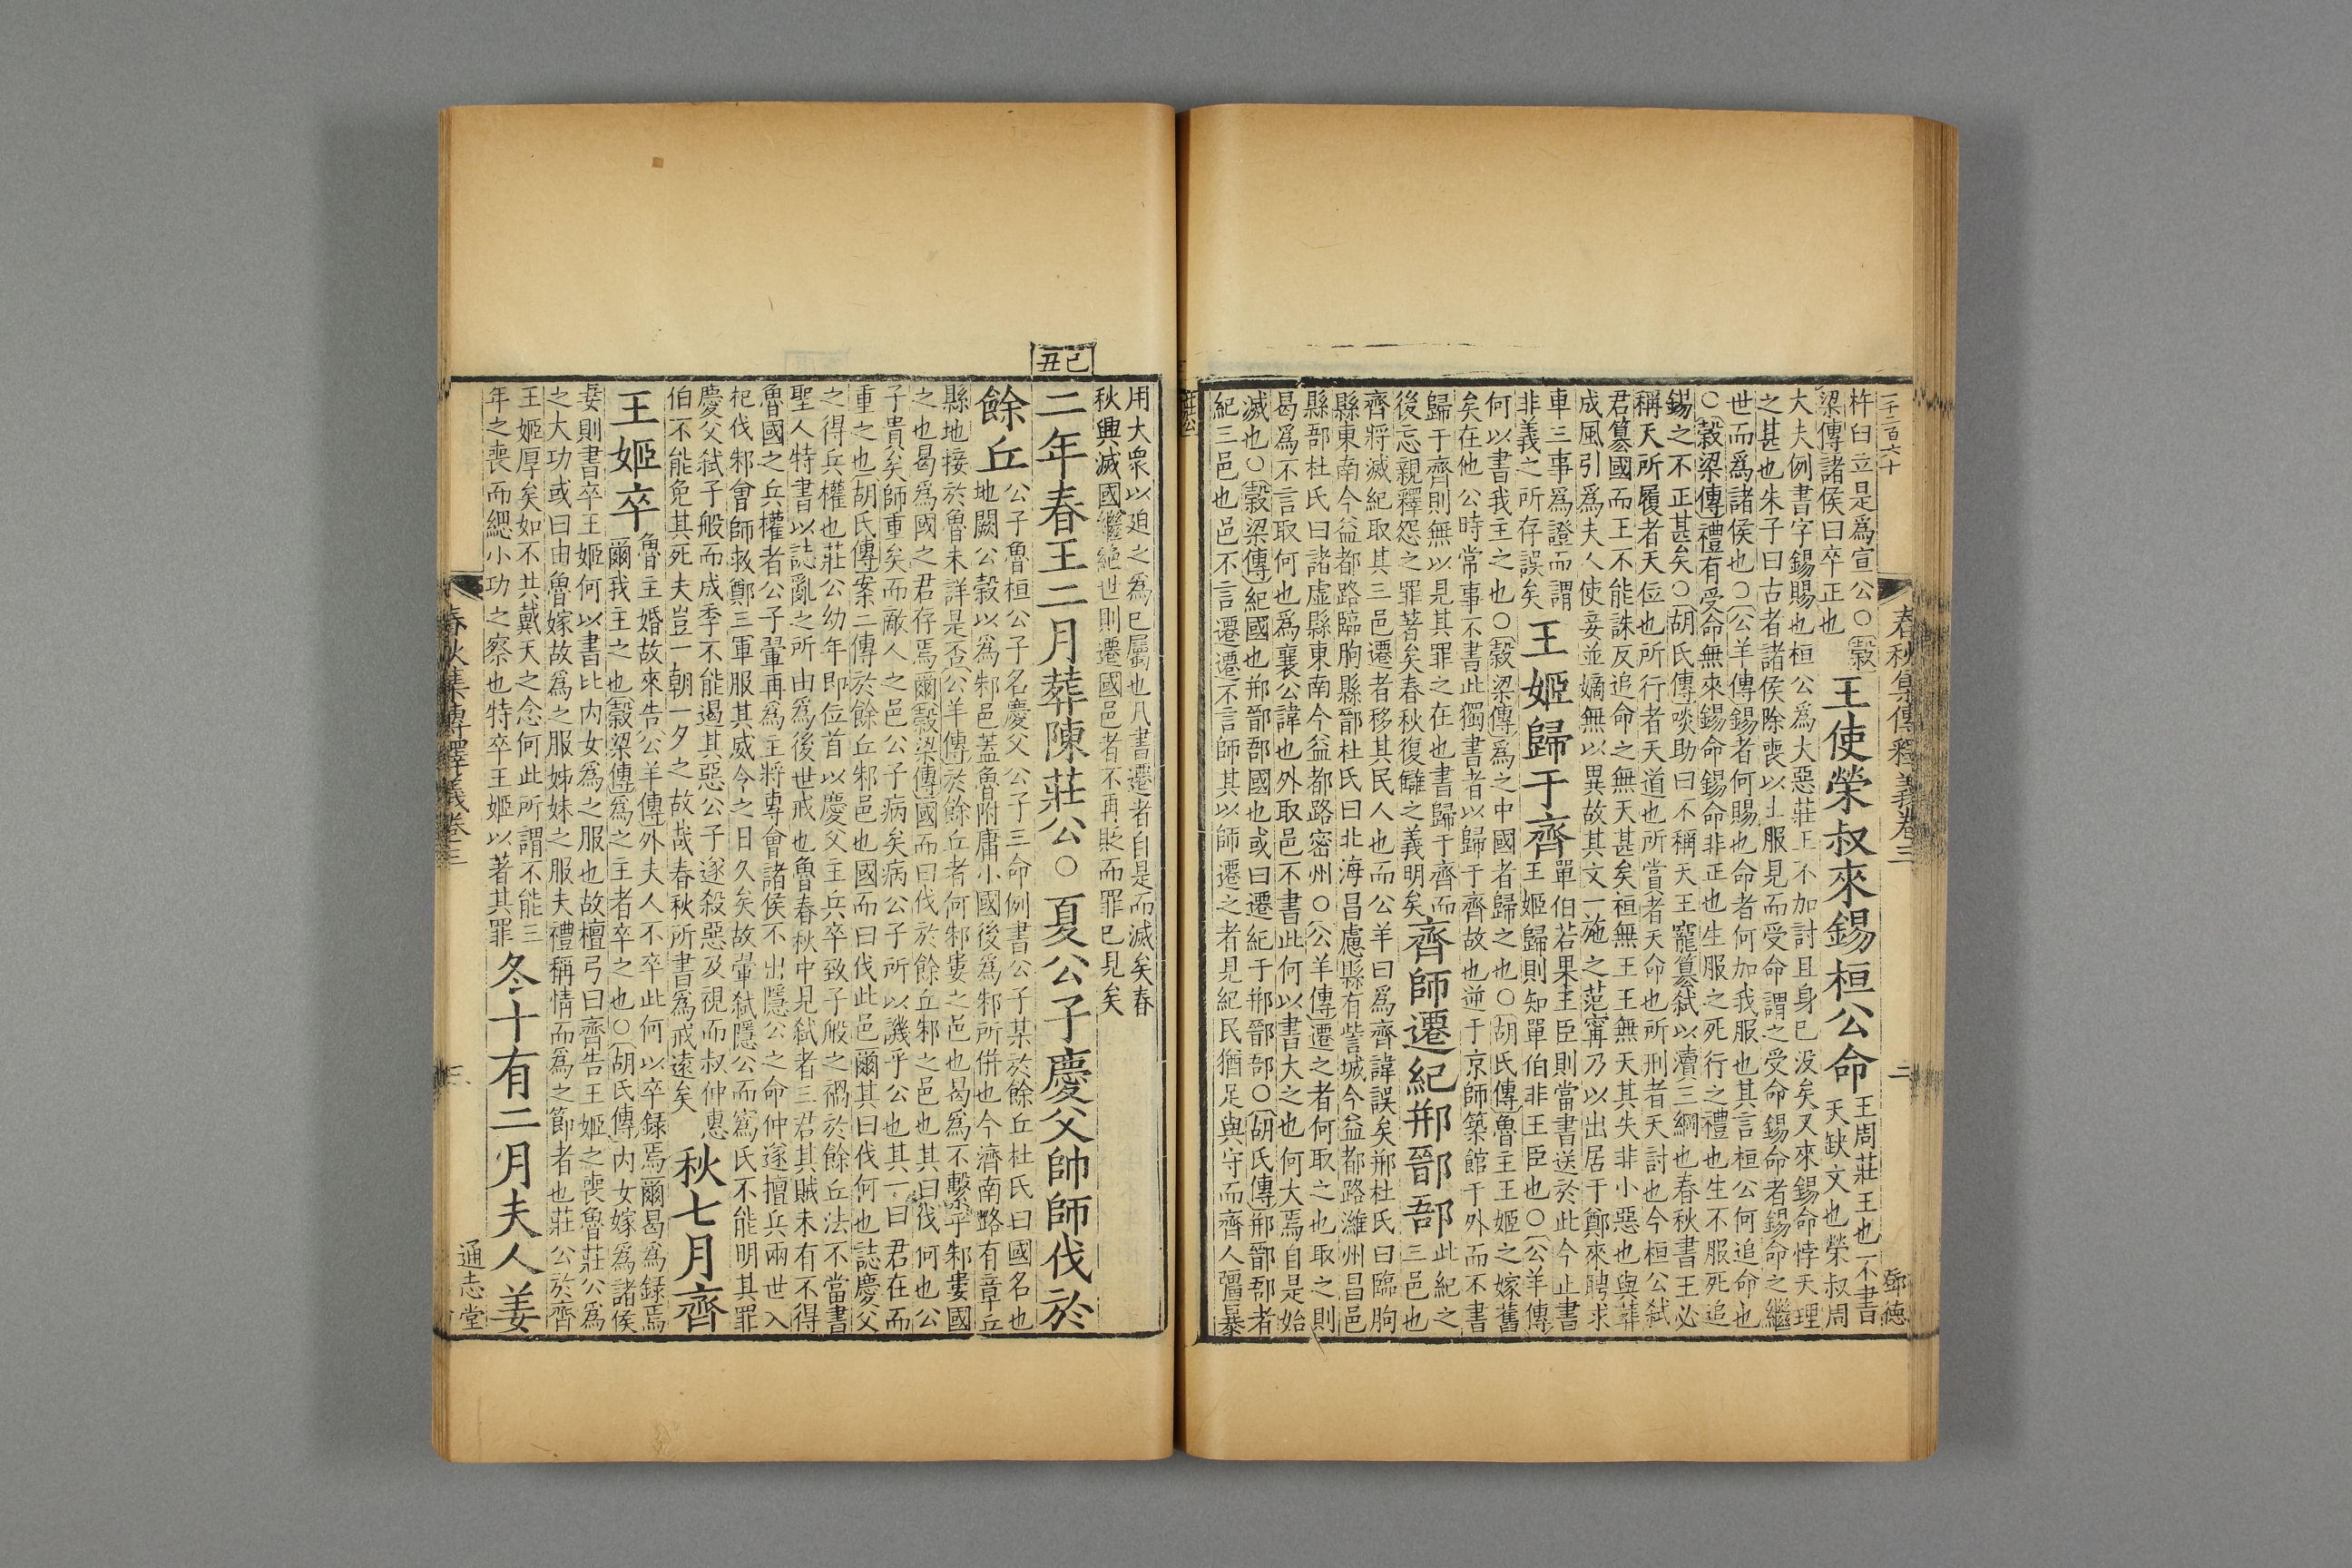 一千二百六十
春秋集傳釋義卷三
二
鄧德
杵臼立是爲宣公○穀
梁傳諸侯曰卒正也
王使榮叔來錫桓公命
王周莊王也不書
天缺文也榮叔周
大夫例書字錫賜也桓公爲大惡莊王不加討且身已没矣又來錫命悖天理
之甚也朱子曰古者諸侯除喪以士服見而受命謂之受命錫命者錫命之繼
世而爲諸侯也○公羊傳錫者何賜也命者何加我服也其言桓公何追命也
○穀梁傳禮有受命無來錫命錫命非正也生服之死行之禮也生不服死追
錫之不正甚矣○胡氏傳啖助曰不稱天王寵簒弑以瀆三綱也春秋書王必
稱天所履者天位也所行者天道也所賞者天命也所刑者天討也今桓公弑
君簒國而王不能誅反追命之無天甚矣桓無王王無天其失非小惡也與葬
成風引爲夫人使妾並嫡無以異故其文一施之范甯乃以出居于鄭來聘求
車三事爲證而謂
非義之所存誤矣
王姬歸于齊
單伯若果王臣則當書送於此今止書
王姬歸則知單伯非王臣也○公羊傳
何以書我主之也○穀梁傳爲之中國者歸之也○胡氏傳魯主王姬之嫁舊
矣在他公時常事不書此獨書者以歸于齊故也逆于京師築館于外而不書
歸于齊則無以見其罪之在也書歸于齊而
後忘親釋怨之罪著矣春秋復讎之義明矣
齊師遷紀郱鄑郚
此紀之
三邑也
齊將滅紀取其三邑遷者移其民人也而公羊曰爲齊諱誤矣郱杜氏曰臨朐
縣東南今益都路臨朐縣鄑杜氏曰北海昌慮縣有訾城今益都路濰州昌邑
縣郚杜氏曰諸虛縣東南今益都路密州○公羊傳遷之者何取之也取之則
曷爲不言取何也爲襄公諱也外取邑不書此何以書大之也何大焉自是始
滅也○穀梁傳紀國也郱鄑郚國也或曰遷紀于郱鄑郚○胡氏傳郱鄑郚者
紀三邑也邑不言遷遷不言師其以師遷之者見紀民猶足與守而齊人彊暴
莊公
用大衆以迫之爲已屬也凡書遷者自是而滅矣春
秋興滅國繼絶世則遷國邑者不再貶而罪已見矣
己丑
二年春王二月葬陳莊公○夏公子慶父帥師伐於
餘丘
公子魯桓公子名慶父公子三命例書公子某於餘丘杜氏曰國名也
地闕公穀以爲邾邑蓋魯附庸小國後爲邾所併也今濟南路有章丘
縣地接於魯未詳是否公羊傳於餘丘者何邾婁之邑也曷爲不繫乎邾婁國
之也曷爲國之君存焉爾穀梁傳國而曰伐於餘丘邾之邑也其曰伐何也公
子貴矣師重矣而敵人之邑公子病矣病公子所以譏乎公也其一曰君在而
重之也胡氏傳案二傳於餘丘邾邑也國而曰伐此邑爾其曰伐何也誌慶父
之得兵權也莊公幼年即位首以慶父主兵卒致子般之禍於餘丘法不當書
聖人特書以誌亂之所由爲後世戒也魯春秋中見弑者三君其賊未有不得
魯國之兵權者公子翬再爲主將專會諸侯不出隱公之命仲遂擅兵兩世入
杞伐邾會師救鄭三軍服其威令之日久矣故翬弑隱公而寪氏不能明其罪
慶父弑子般而成季不能遏其惡公子遂殺惡及視而叔仲惠
伯不能免其死夫豈一朝一夕之故哉春秋所書爲戒遠矣
秋七月齊
王姬卒
魯主婚故來告公羊傳外夫人不卒此何以卒録焉爾曷爲録焉
爾我主之也穀梁傳爲之主者卒之也○胡氏傳内女嫁爲諸侯
妻則書卒王姬何以書比内女爲之服也故檀弓曰齊告王姬之喪魯莊公爲
之大功或曰由魯嫁故爲之服姊妹之服夫禮稱情而爲之節者也莊公於齊
王姬厚矣如不共戴天之念何此所謂不能三
年之喪而緦小功之察也特卒王姬以著其罪
冬十有二月夫人姜
春秋集傳釋義卷三
三
通志堂